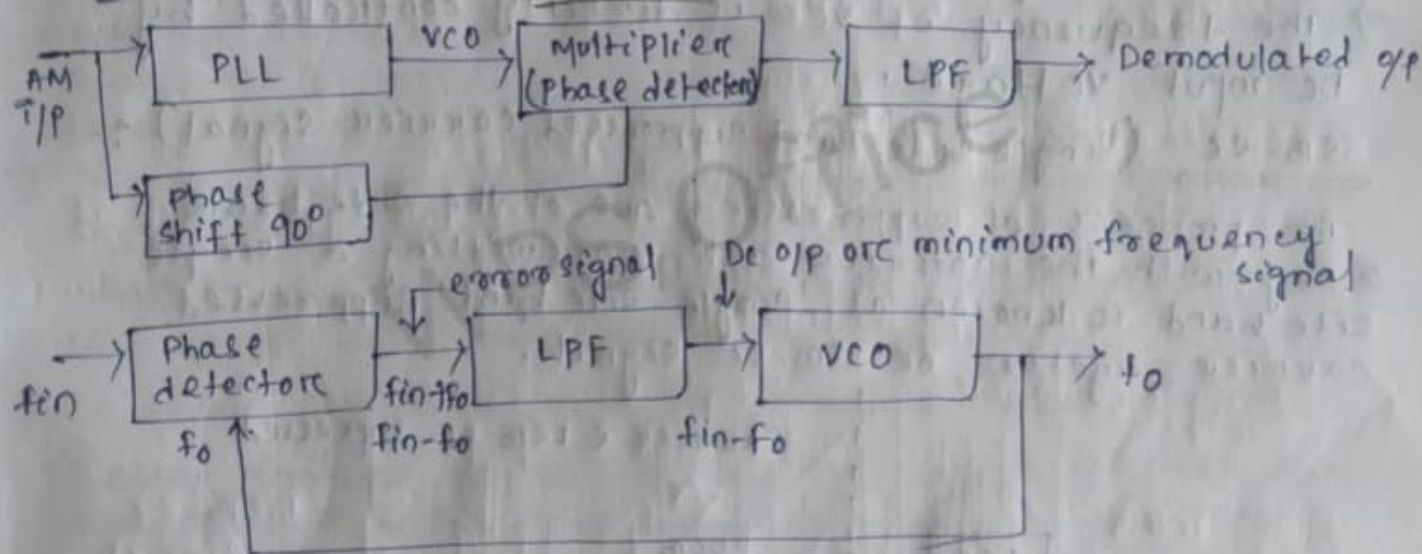 AM
I/P
PLL
VCO
Multiplier
(phase detector)
LPF
Demodulated o/p
phase
shift 90°
error signal
Dc o/p orc minimum frequency
signal
fin
Phase
detectorc
fo
fin+fo
fin-fo
LPF
fin-fo
VCO
fo
Office